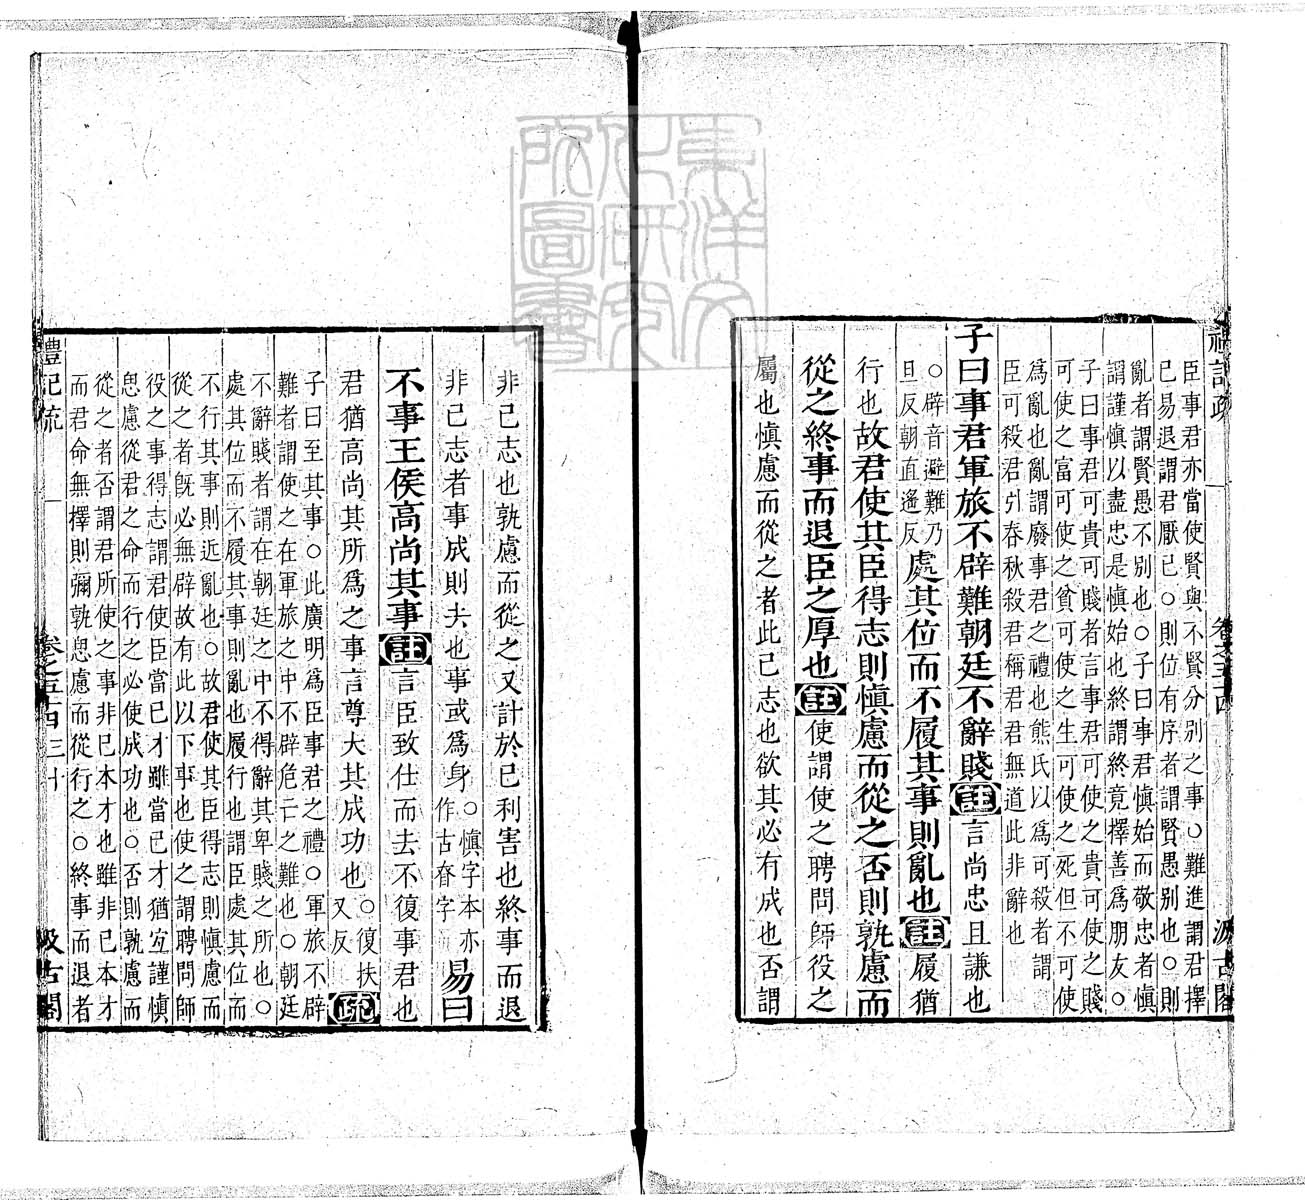 禮記疏 卷之五十四 汲古閣
臣事君亦當使賢與不賢分別之事○難進謂君擇
己易退謂君厭己○則位有序者謂賢愚別也○則
亂者謂賢愚不別也○子曰事君慎始而敬忠者慎
謂謹慎以盡忠是慎始也終謂終竟擇善爲朋友○
子曰事君可貴可賤者言事君可使之貴可使之賤
可使之富可使之貧可使之生可使之死但不可使
爲亂也亂謂廢事君之禮也熊氏以爲可殺者謂
臣可殺君引春秋殺君稱君君無道此非辭也
子曰事君軍旅不辟難朝廷不辭賤註言尚忠且謙也
○辟音避難乃旦反朝直遙反處其位而不履其事則亂也註履猶
行也故君使其臣得志則慎慮而從之否則孰慮而
從之終事而退臣之厚也註使謂使之聘問師役之
屬也慎慮而從之者此己志也欲其必有成也否謂
非己志也孰慮而從之又計於己利害也終事而退
非己志者事成則去也事或爲身○慎字本亦作古昚字易曰
不事王侯高尚其事註言臣致仕而去不復事君也
君猶高尚其所爲之事言尊大其成功也○復扶又反疏
子曰至其事○此廣明爲臣事君之禮○軍旅不辟
難者謂使之在軍旅之中不辟危亡之難也○朝廷
不辭賤者謂在朝廷之中不得辭其卑賤之所也○
處其位而不履其事則亂也履行也謂臣處其位而
不行其事則近亂也○故君使其臣得志則慎慮而
從之者旣必無辟故有此以下事也使之謂聘問師
役之事得志謂君使臣當己才雖當己才猶宜謹慎
思慮從君之命而行之必使成功也○否則孰慮而
從之者否謂君所使之事非己本才也雖非己本才
而君命無擇則彌孰思慮而從行之○終事而退者
禮記疏 卷之五十四 三十 汲古閣
東洋文化研究所圖書